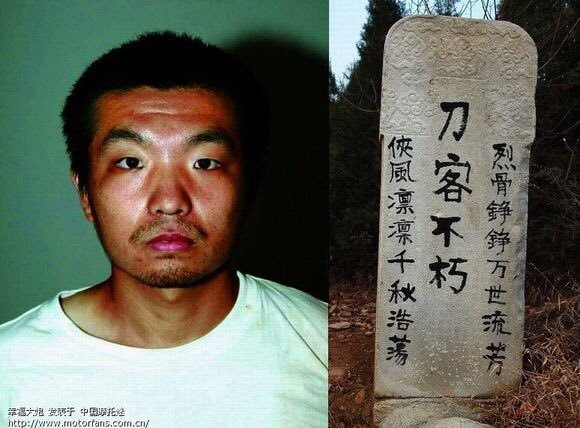 刀客不朽
烈骨錚錚万世流芳
俠風凛凛千秋浩蕩
幸福大炮 发表于 中国摩托迷
http://www.motorfans.com.cn/